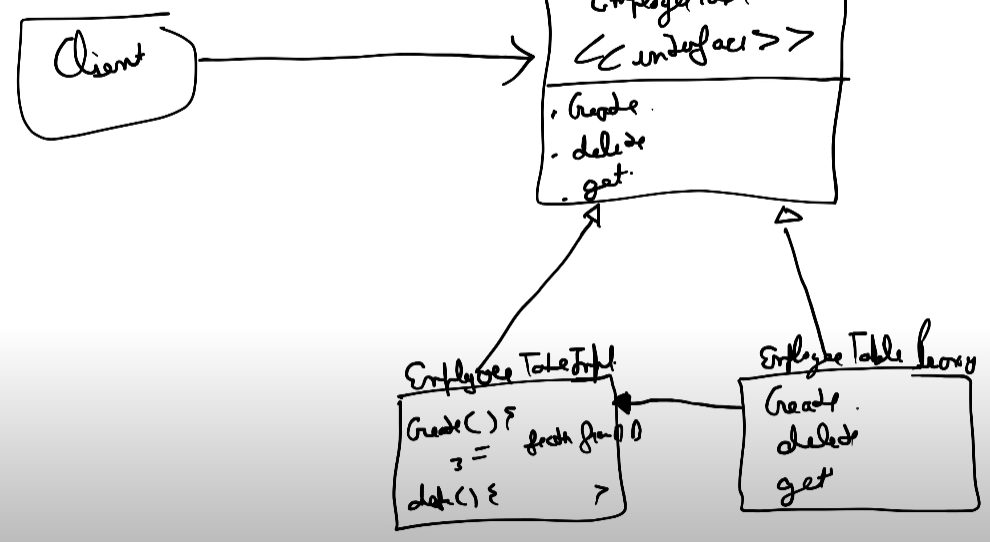 Client
<<interface>>
. Create.
. delete
. get.
Employee Table Impl.
Create() {
}
delete() {
Employee Table Proxy
Create.
delete
get